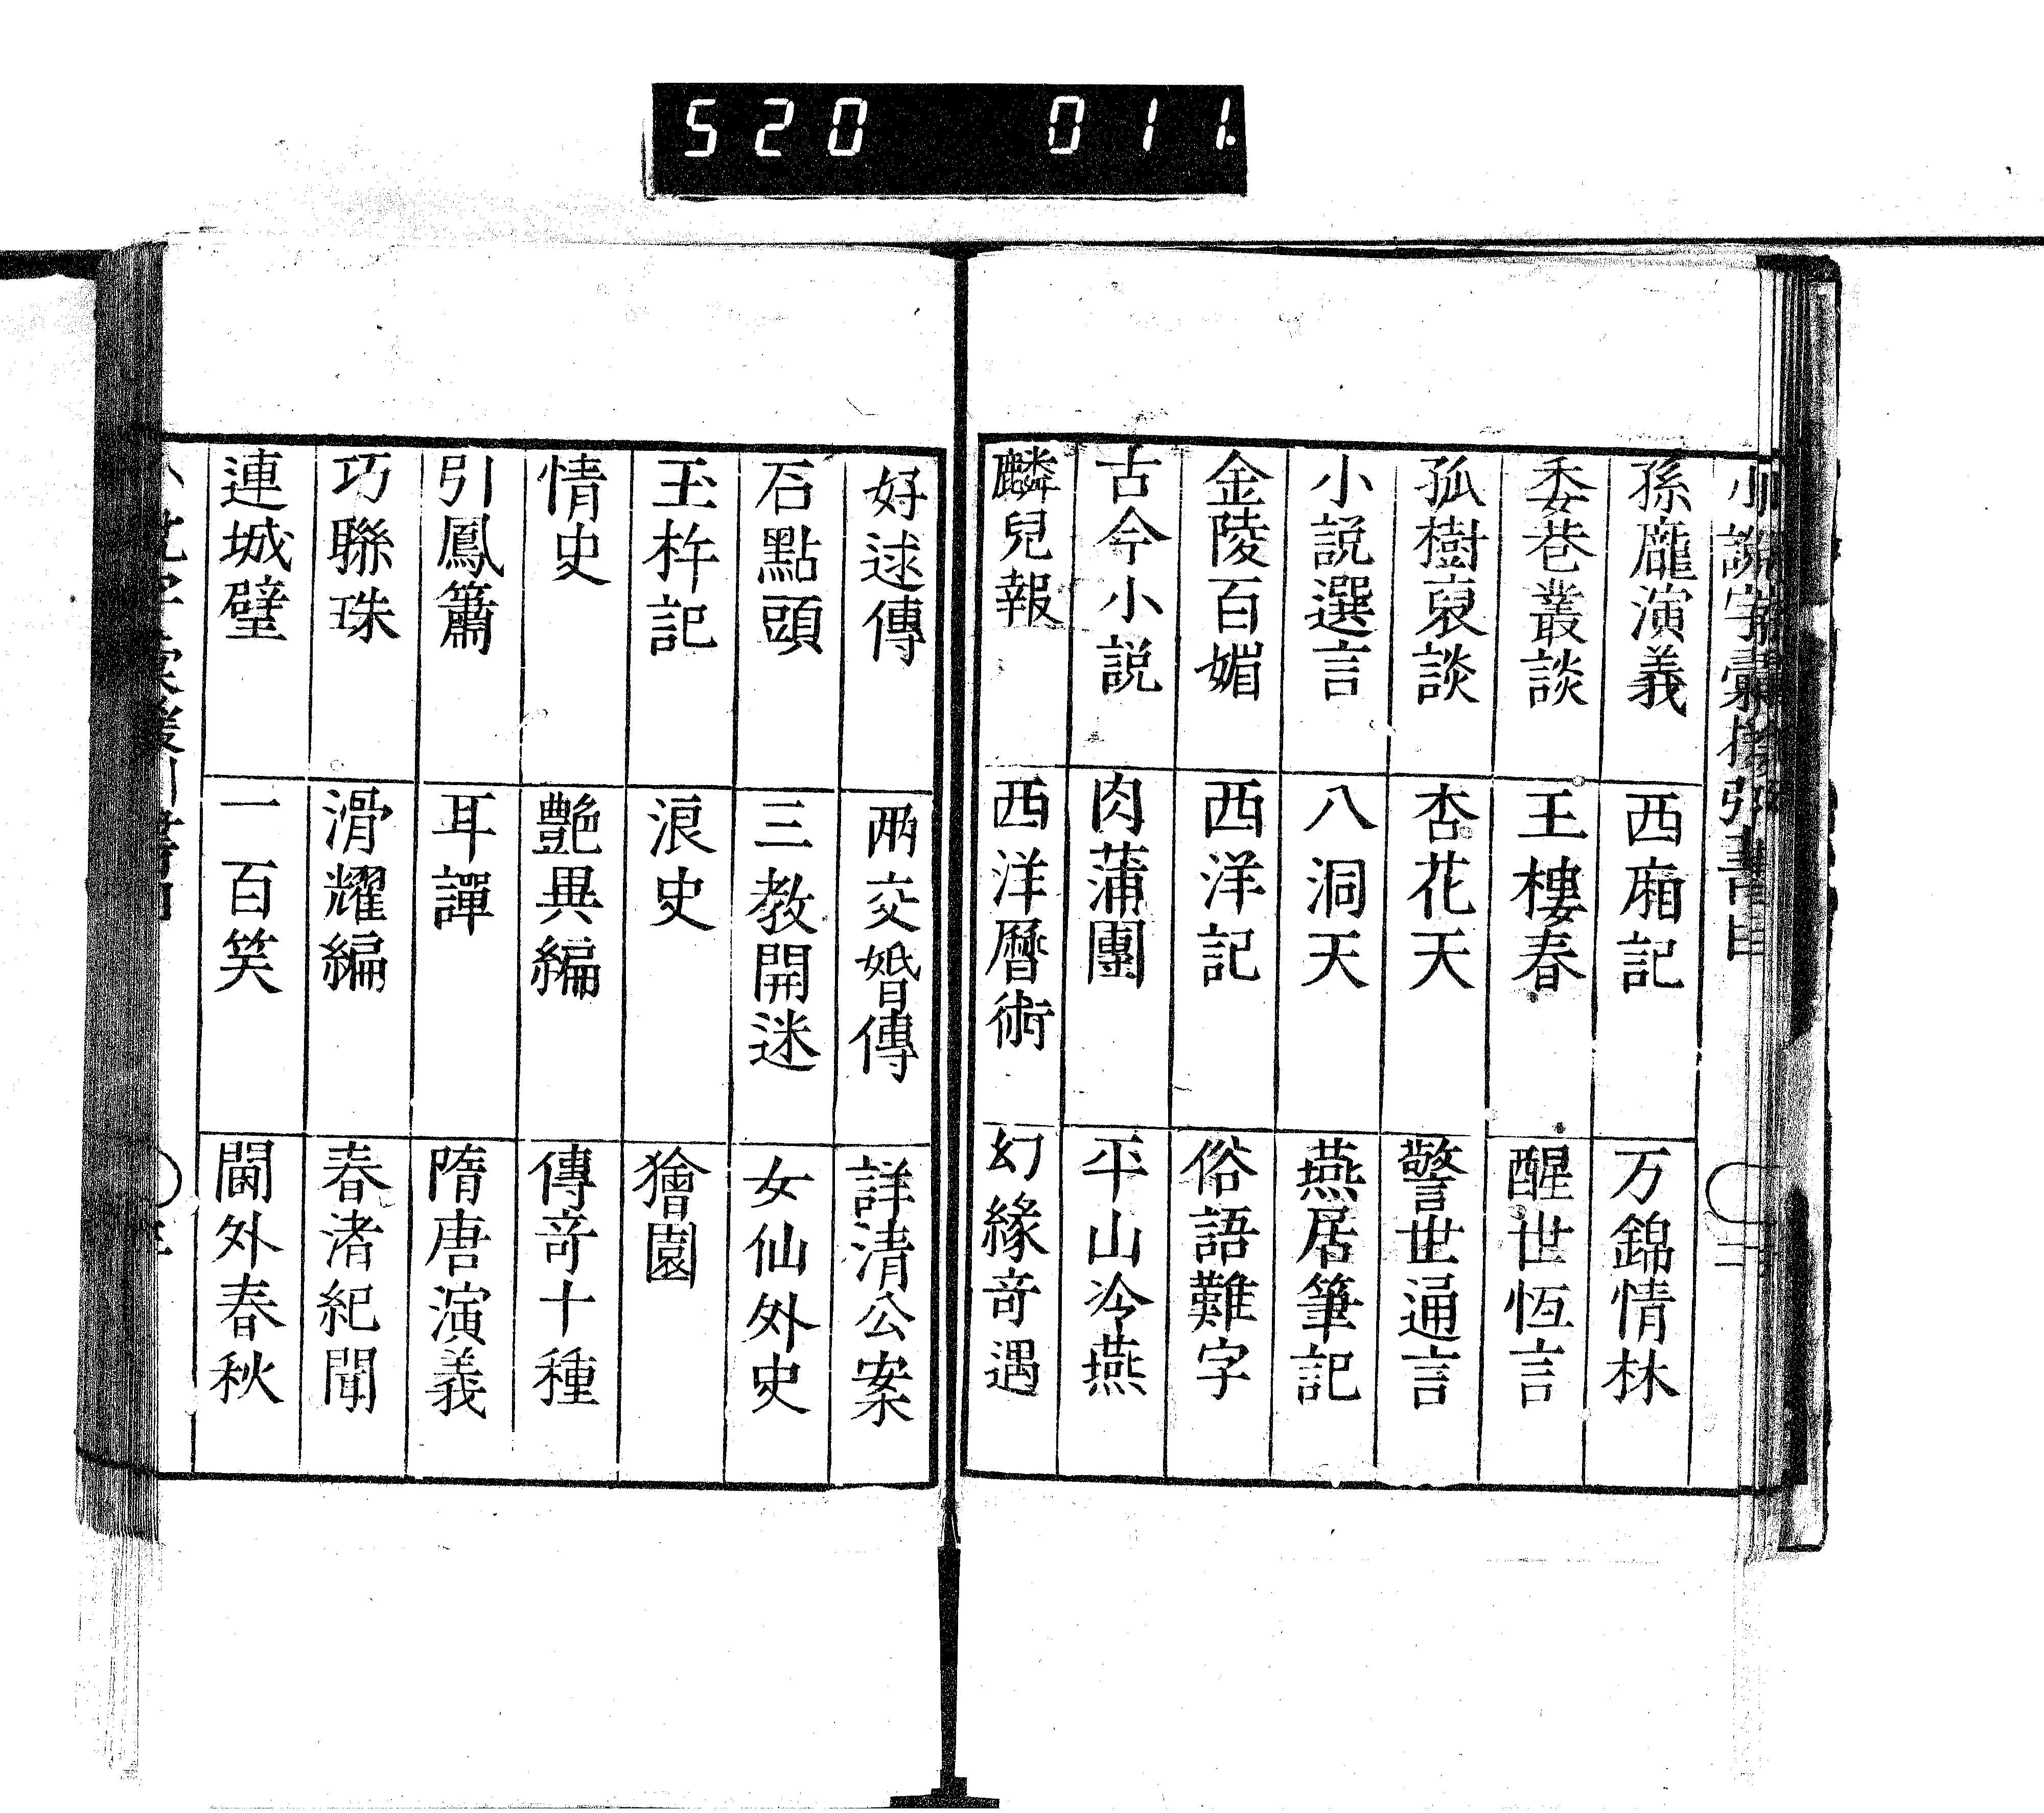 520 011.
小說字彙援引書目
孫龐演義 西廂記 万錦情林
委巷叢談 王樓春 醒世恆言
孤樹裒談 杏花天 警世通言
小説選言 八洞天 燕居筆記
金陵百媚 西洋記 俗語難字
古今小説 肉蒲團 平山冷燕
麟兒報 西洋曆術 幻緣竒遇
好逑傳 兩交婚傳 詳清公案
石點頭 三教開迷 女仙外史
玉杵記 浪史 獪園
情史 艷異編 傳竒十種
引鳳簫 耳譚 隋唐演義
巧聯珠 滑耀編 春渚紀聞
連城璧 一百笑 閫外春秋